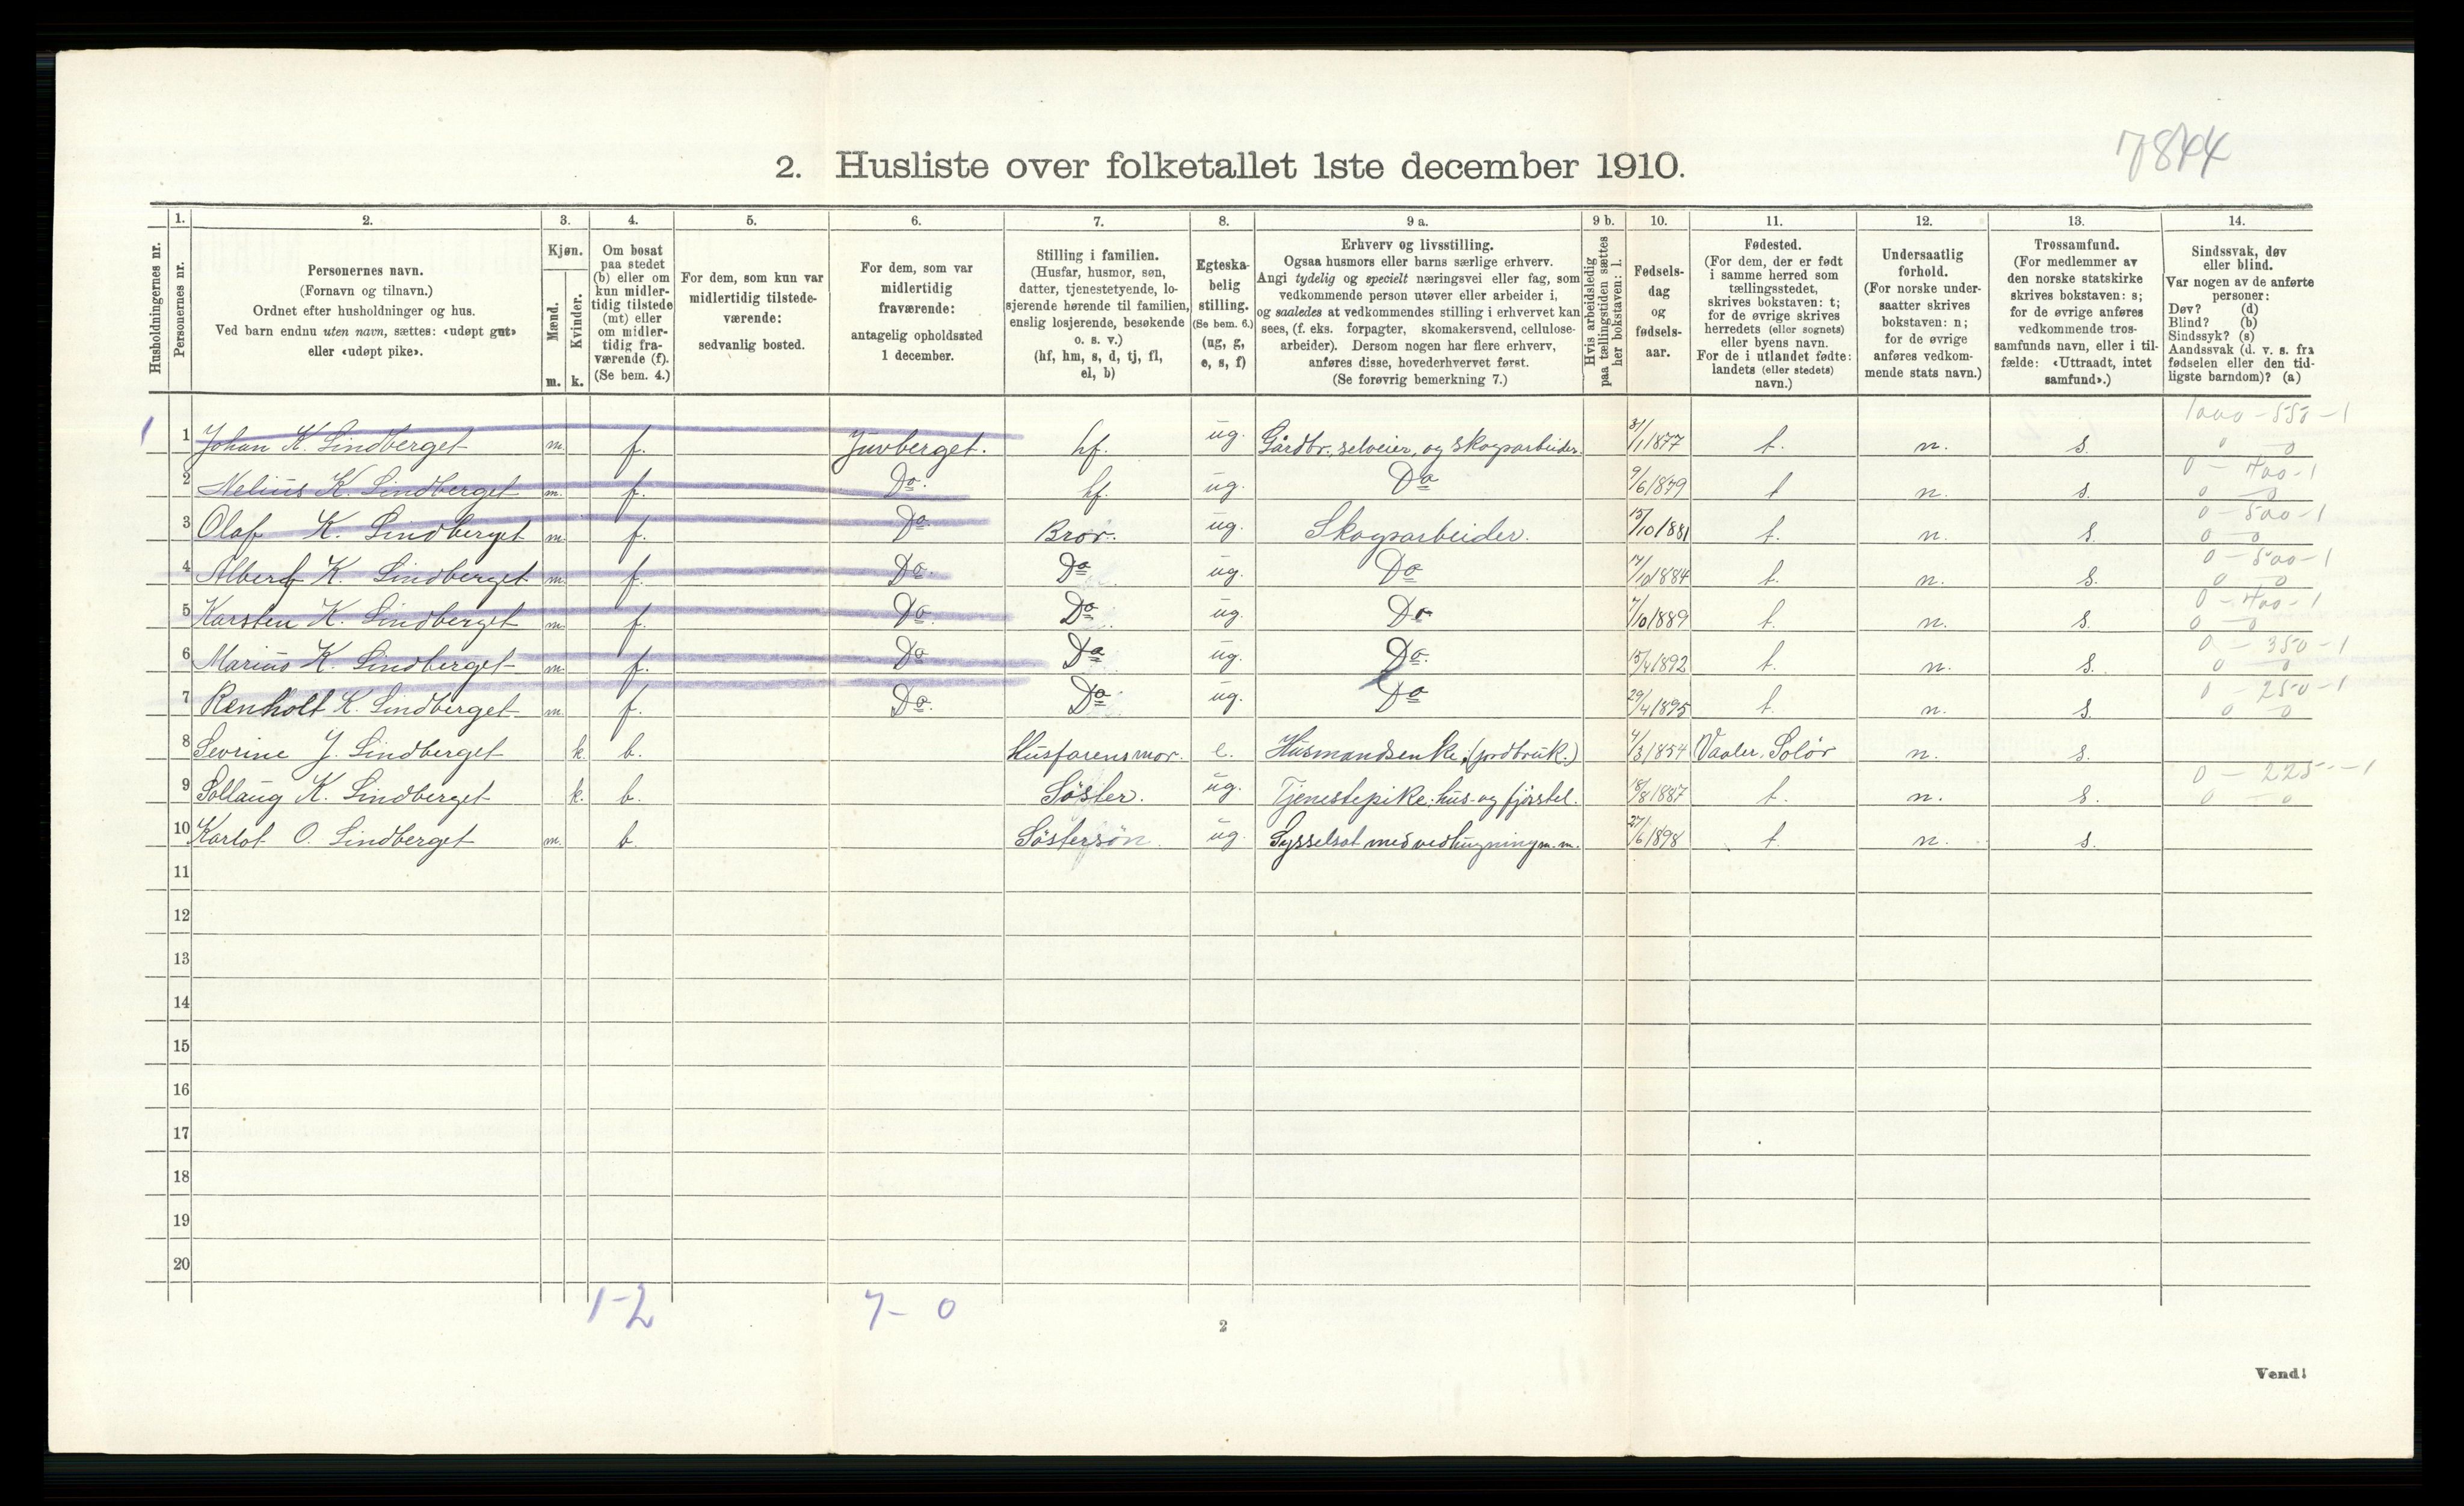 7844
2. Husliste over folketallet 1ste december 1910.
Husholdningernes nr.
1.
Personernes nr.
2.
Personernes navn.
(Fornavn og tilnavn.)
Ordnet efter husholdninger og hus.
Ved barn endnu uten navn, sættes: «udøpt gut»
eller «udøpt pike».
3.
Kjøn.
Mænd.
Kvinder.
m. k.
4.
Om bosat
paa stedet
(b) eller om
kun midler-
tidig tilstede
(mt) eller
om midler-
tidig fra-
værende (f).
(Se bem. 4.)
5.
For dem, som kun var
midlertidig tilstede-
værende:
sedvanlig bosted.
6.
For dem, som var
midlertidig
fraværende:
antagelig opholdssted
1 december.
7.
Stilling i familien.
(Husfar, husmor, søn,
datter, tjenestetyende, lo-
sjerende hørende til familien,
enslig losjerende, besøkende
o. s. v.)
(hf, hm, s, d, tj, fl,
el, b)
8.
Egteska-
belig
stilling.
(Se bem. 6.)
(ug, g,
e, s, f)
9 a.
Erhverv og livsstilling.
Ogsaa husmors eller barns særlige erhverv.
Angi tydelig og specielt næringsvei eller fag, som
vedkommende person utøver eller arbeider i,
og saaledes at vedkommendes stilling i erhvervet kan
sees, (f. eks. forpagter, skomakersvend, cellulose-
arbeider). Dersom nogen har flere erhverv,
anføres disse, hovederhvervet først.
(Se forøvrig bemerkning 7.)
9 b.
Hvis arbeidsledig
paa tællingstiden sættes
her bokstaven: l.
10.
Fødsels-
dag
og
fødsels-
aar.
11.
Fødested.
(For dem, der er født
i samme herred som
tællingsstedet,
skrives bokstaven: t;
for de øvrige skrives
herredets (eller sognets)
eller byens navn.
For de i utlandet fødte:
landets (eller stedets)
navn.)
12.
Undersaatlig
forhold.
(For norske under-
saatter skrives
bokstaven: n;
for de øvrige
anføres vedkom-
mende stats navn.)
13.
Trossamfund.
(For medlemmer av
den norske statskirke
skrives bokstaven: s;
for de øvrige anføres
vedkommende tros-
samfunds navn, eller i til-
fælde: «Uttraadt, intet
samfund».)
14.
Sindssvak, døv
eller blind.
Var nogen av de anførte
personer:
Døv? (d)
Blind? (b)
Sindssyk? (s)
Aandssvak (d. v. s. fra
fødselen eller den tid-
ligste barndom)? (a)
1000 - 550 - 1
1 1 Johan K. Lindberget m. f. Juvberget. hf. ug. Gårdbr., selveier, og skogsarbeider. 31/1 1877 t. n. s. 0 0
0 - 400 - 1
2 Nelius K. Lindberget m. f. Do. hf. ug. Do 9/6 1879 t n. s. 0 - 0
0 - 500 - 1
3 Olaf K. Lindberget m. f. Do. Bror. ug. Skogsarbeider. 15/10 1881 t. n. s. 0 - 0
0 - 500 - 1
4 Albert K. Lindberget m. f. Do. Do ug. Do 17/10 1884 t. n. s. 0 0
0 - 400 - 1
5 Karsten K. Lindberget m. f. Do. Do ug. Do 7/10 1889 t. n. s. 0 - 0
0 - 350 - 1
6 Marius K. Lindberget m. f. Do Do ug. Do. 15/4 1892 t. n. s. 0 0
0 - 250 - 1
7 Renholt K. Lindberget m. f. Do. Do ug. Do 29/4 1895 t. n. s. 0 0
8 Sevrine J. Lindberget k. b. Husfarens mor. e. Husmandsenke. (jordbruk.) 4/3 1854 Vaaler, Solør n. s.
0 - 225 - 1
9 Sollaug K. Lindberget k. b. Søster. ug. Tjenestepike: hus- og fjøsstel. 18/8 1887 t. n. s. 0 - 0
10 Karlot O. Lindberget m. b Søstersøn. ug. Sysselsat med vedhugning m. m. 27/6 1898 t. n. s.
11
12
13
14
15
16
17
18
19
20
1-2 7- 0
2
Vend!